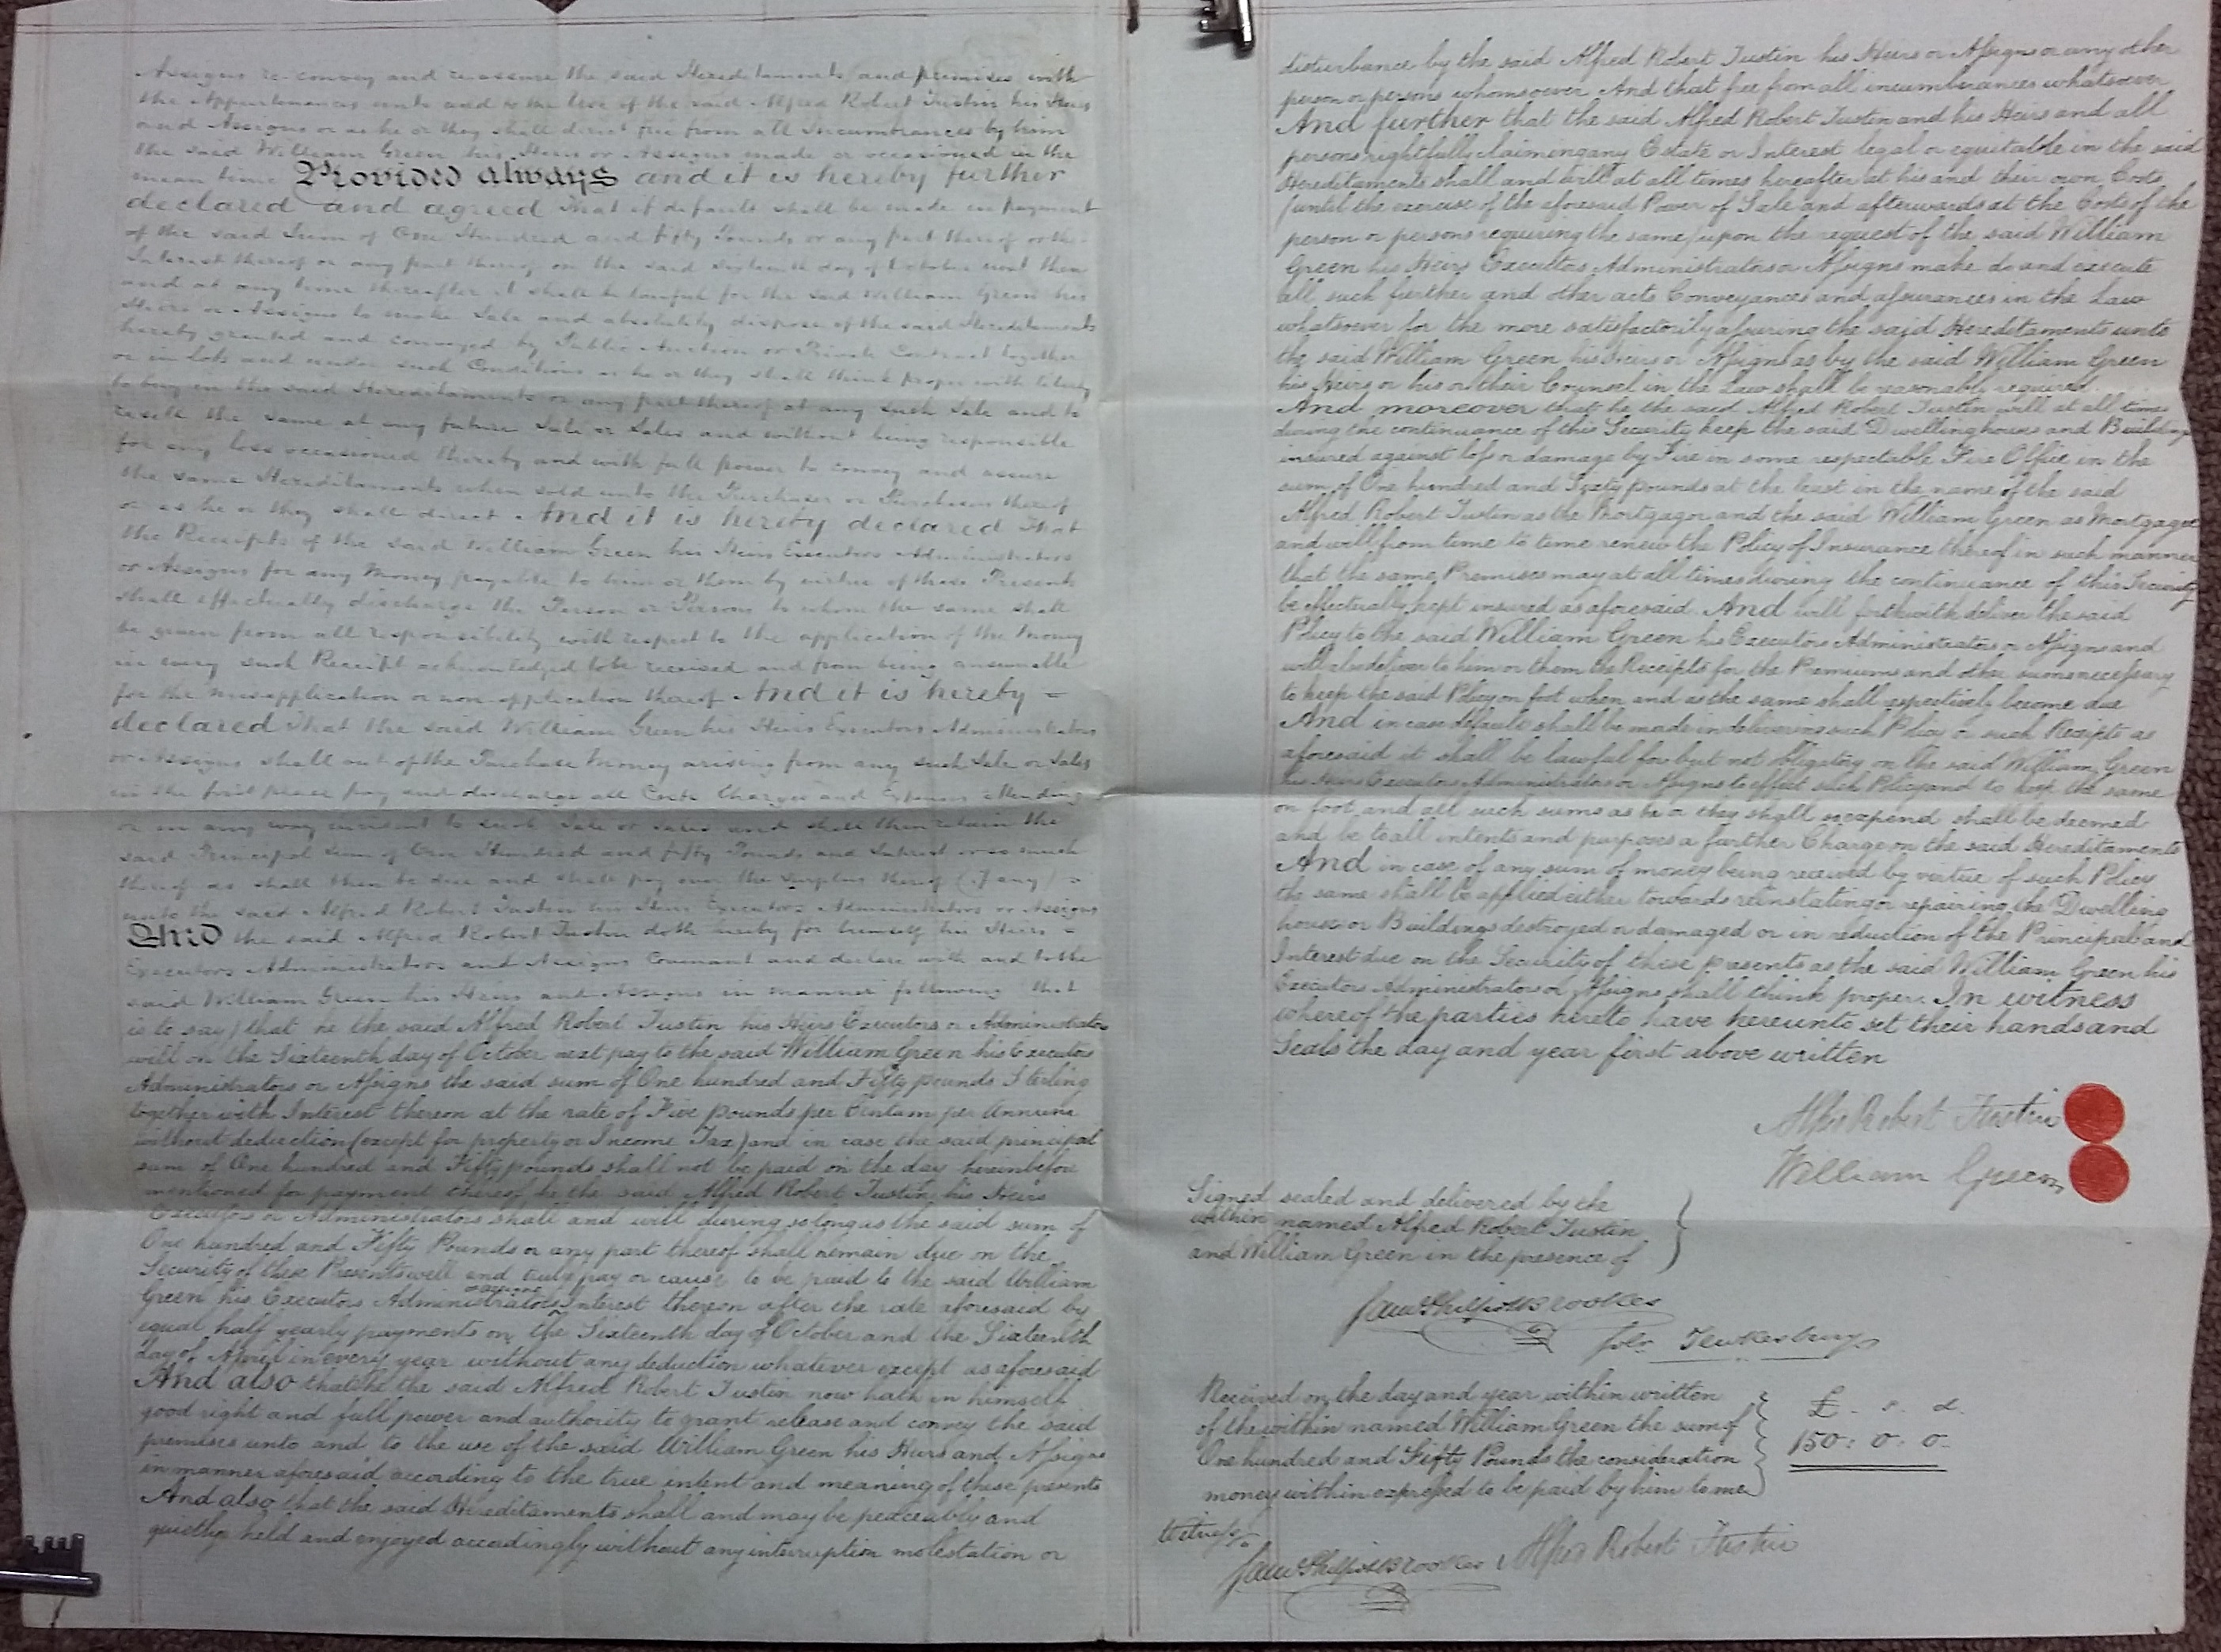 Assigns re-convey and reassure the said Hereditaments and premises with
the Appurtenances unto and to the Use of the said Alfred Robert Tustin his Heirs
and Assigns or as he or they shall direct free from all Incumbrances by him
the said William Green his Heirs or Assigns made or occasioned in the
mean time Provided always and it is hereby further
declared and agreed that if default shall be made in payment
of the said Sum of One Hundred and fifty Pounds or any part thereof or the
Interest thereof or any part thereof on the said sixteenth day of October next then
and at any time thereafter it shall be lawful for the said William Green his
Heirs or Assigns to make Sale and absolutely dispose of the said Hereditaments
hereby granted and conveyed by Public Auction or Private Contract together
or in Lots and under such Conditions as he or they shall think proper with liberty
to buy in the said Hereditaments or any part thereof at any such Sale and to
resell the same at any future Sale or Sales and without being responsible
for any loss occasioned thereby and with full power to convey and assure
the same Hereditaments when sold unto the Purchaser or Purchasers thereof
or as he or they shall direct And it is hereby declared that
the Receipts of the said William Green his Heirs Executors Administrators
or Assigns for any Money payable to him or them by virtue of these Presents
shall effectually discharge the Person or Persons to whom the same shall
be given from all responsibility with respect to the application of the Money
in every such Receipt acknowledged to be received and from being answerable
for the misapplication or non-application thereof And it is hereby =
declared that the said William Green his Heirs Executors Administrators
or Assigns shall out of the Purchase Money arising from any such Sale or Sales
in the first place pay and discharge all Costs Charges and Expenses attending
or in any way incident to such Sale or Sales and shall then retain the
said Principal Sum of One Hundred and fifty Pounds and Interest or so much
thereof as shall then be due and shall pay over the surplus thereof (if any) =
unto the said Alfred Robert Tustin his Heirs Executors Administrators or Assigns
And the said Alfred Robert Tustin doth hereby for himself his Heirs =
Executors Administrators and Assigns Covenant and declare with and to the
said William Green his Heirs and Assigns in manner following that
is to say) that he the said Alfred Robert Tustin his Heirs Executors or Administrators
will on the Sixteenth day of October next pay to the said William Green his Executors
Administrators or Assigns the said sum of One hundred and Fifty pounds Sterling
together with Interest thereon at the rate of Five pounds per Centum per Annum
without deduction (except for property or Income Tax) and in case the said principal
sum of One hundred and Fifty pounds shall not be paid on the day hereinbefore
mentioned for payment thereof he the said Alfred Robert Tustin his Heirs
Executors or Administrators shall and will during so long as the said sum of
One hundred and Fifty Pounds or any part thereof shall remain due on the
Security of these Presents well and truly pay or cause to be paid to the said William
Green his Executors Administrators or assigns Interest thereon after the rate aforesaid by
equal half yearly payments on the Sixteenth day of October and the Sixteenth
day of April in every year without any deduction whatever except as aforesaid
And also that he the said Alfred Robert Tustin now hath in himself
good right and full power and authority to grant release and convey the said
premises unto and to the use of the said William Green his Heirs and Assigns
in manner aforesaid according to the true intent and meaning of these presents
And also that the said Hereditaments shall and may be peaceably and
quietly held and enjoyed accordingly without any interruption molestation or
disturbance by the said Alfred Robert Tustin his Heirs or Assigns or any other
person or persons whomsoever And that free from all incumbrances whatsoever
And further that the said Alfred Robert Tustin and his Heirs and all
persons rightfully claiming any Estate or Interest legal or equitable in the said
Hereditaments shall and will at all times hereafter at his and their own Costs
(until the exercise of the aforesaid Power of Sale and afterwards at the Costs of the
person or persons requiring the same) upon the request of the said William
Green his Heirs Executors Administrators or Assigns make do and execute
all such further and other acts Conveyances and assurances in the Law
whatsoever for the more satisfactorily assuring the said Hereditaments unto
the said William Green his Heirs or Assigns as by the said William Green
his Heirs or his or their Counsel in the Law shall be reasonably required
And moreover that he the said Alfred Robert Tustin will at all times
during the continuance of this Security keep the said Dwellinghouses and Buildings
insured against loss or damage by Fire in some respectable Fire Office in the
sum of One hundred and Sixty pounds at the least in the name of the said
Alfred Robert Tustin as the Mortgagor and the said William Green as Mortgagee
and will from time to time renew the Policy of Insurance thereof in such manner
that the same Premises may at all times during the continuance of this Security
be effectually kept insured as aforesaid And will forthwith deliver the said
Policy to the said William Green his Executors Administrators or Assigns and
will also deliver to him or them the Receipts for the Premiums and other sums necessary
to keep the said Policy on foot when and as the same shall respectively become due
And in case default shall be made in delivering such Policy or such Receipts as
aforesaid it shall be lawful for but not obligatory on the said William Green
his Heirs Executors Administrators or Assigns to effect such Policy and to keep the same
on foot and all such sums as he or they shall so expend shall be deemed
and be to all intents and purposes a further Charge on the said Hereditaments
And in case of any sum of money being received by virtue of such Policy
the same shall be applied either towards reinstating or repairing the Dwelling
house or Buildings destroyed or damaged or in reduction of the Principal and
Interest due on the Security of these presents as the said William Green his
Executors Administrators or Assigns shall think proper. In witness
whereof the parties hereto have hereunto set their hands and
Seals the day and year first above written
Alfred Robert Tustin
William Green
Signed sealed and delivered by the
within named Alfred Robert Tustin
and William Green in the presence of
Brookes
Solr Tewkesbury
Received on the day and year within written
of the within named William Green the sum of
One hundred and Fifty Pounds the consideration
money within expressed to be paid by him to me
£ . s. d.
150: 0: 0
Witness
Brookes
Alfred Robert Tustin